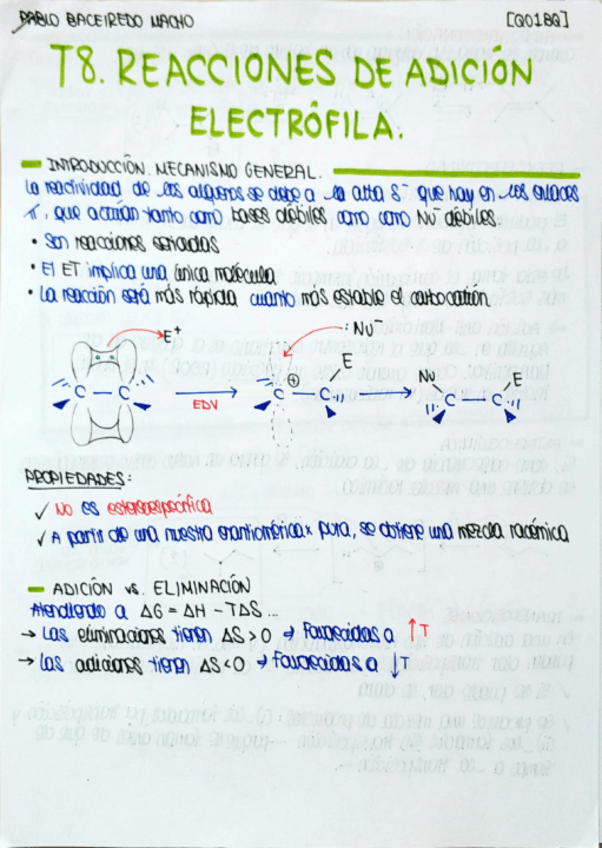 PABLO BACEIREDO MACHO [Q01BQ]
T8. REACCIONES DE ADICIÓN
ELECTRÓFILA.
INTRODUCCIÓN. MECANISMO GENERAL.
La reactividad de los alquenos se debe a la alta δ⁻ que hay en los enlaces
π, que actúan tanto como bases débiles como como Nu⁻ débiles.
• Son reacciones
• El ET implica una única molécula
• La reacción será más rápida cuanto más estable el carbocatión.
E⁺ :Nu⁻
E Nu E
C — C C ⊕ — C C — C
EDV
PROPIEDADES:
✓ No es estereoespecífica
✓ A partir de una muestra enantiomérica pura, se obtiene una mezcla racémica
— ADICIÓN vs. ELIMINACIÓN
Atendiendo a ΔG = ΔH - TΔS ...
→ Las eliminaciones tienen ΔS > 0 → favorecidas a ↑T
→ Las adiciones tienen ΔS < 0 → favorecidas a ↓T